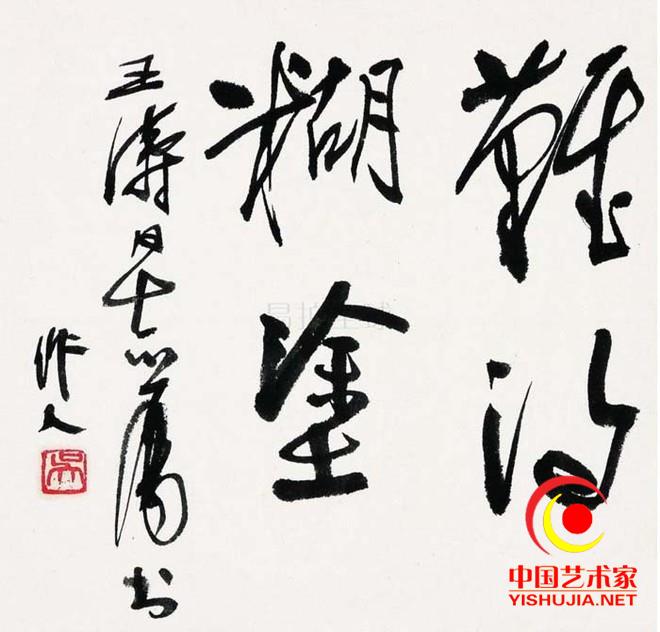 難得
糊塗
王濤同志屬书
作人
吴
易拍全球
中国艺术家
YISHUJIA.NET